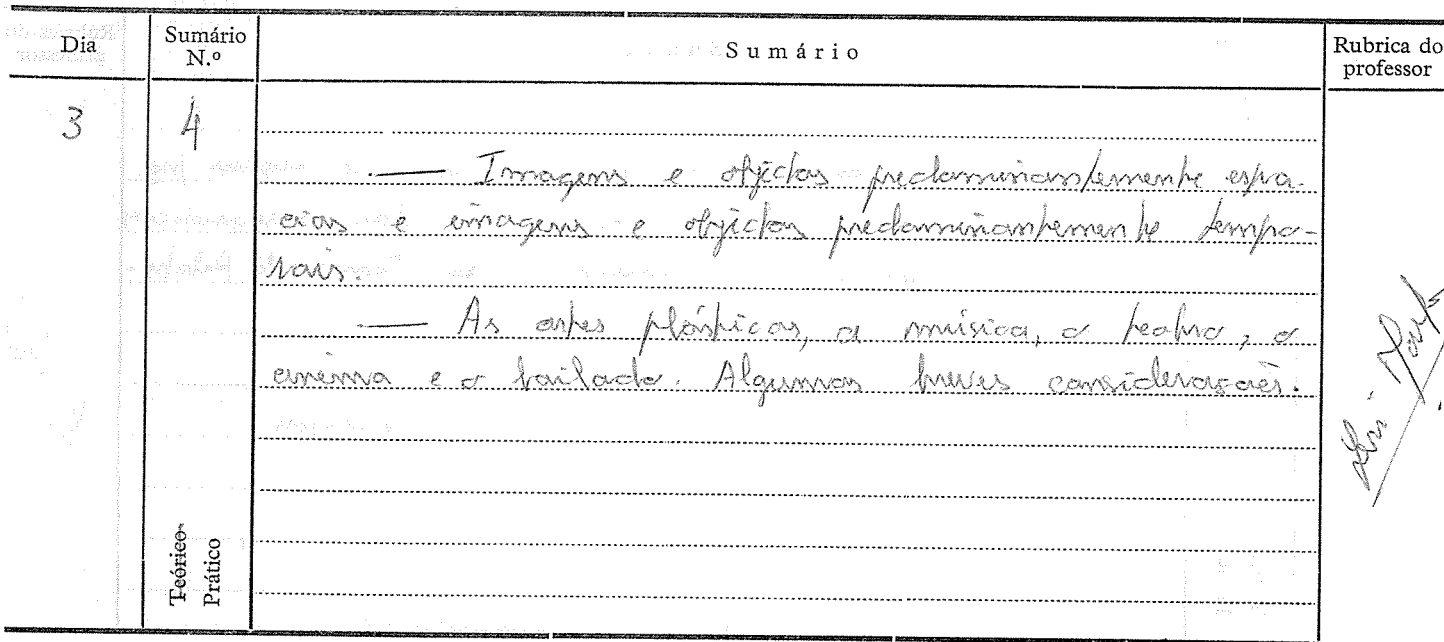 Dia
Sumário N.º
Sumário
Rubrica do professor
3
4
— Imagens e objectos predominantemente espa-
ciais e imagens e objectos predominantemente tempo-
rais.
— As artes plásticas, a música, o teatro, o
cinema e o bailado. Algumas breves considerações.
Teórico-
Prático